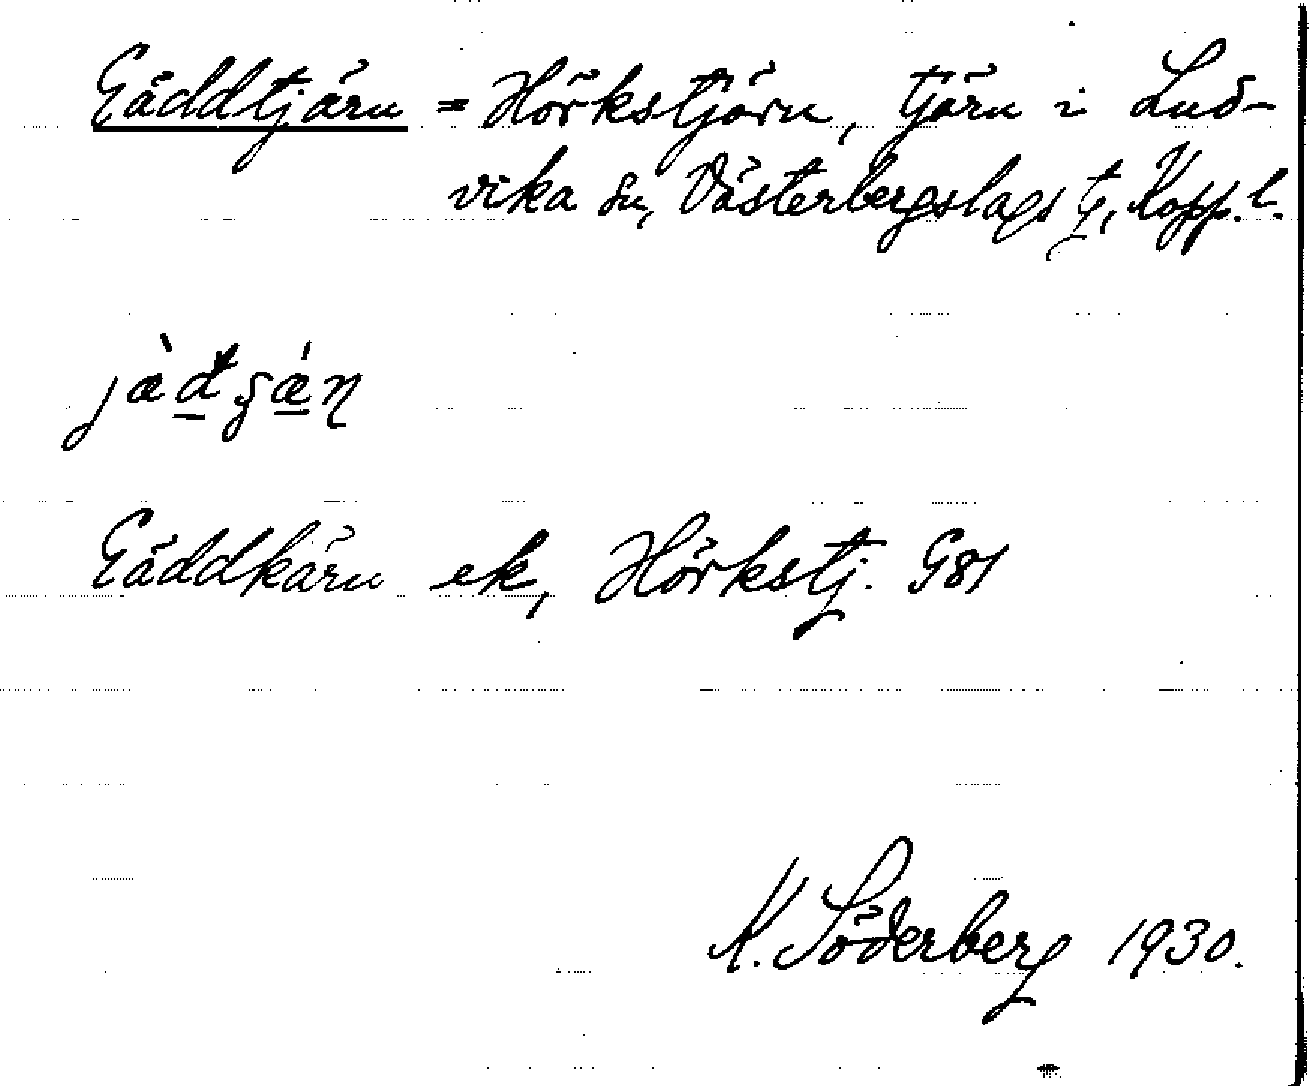 Gäddtjärn = Hörkstjärn, tjärn i Lud-
vika sn, Västerbergslags t, Kopp. l.
Gäddkärn ek, Hörkstj. G81
K. Söderberg 1930.